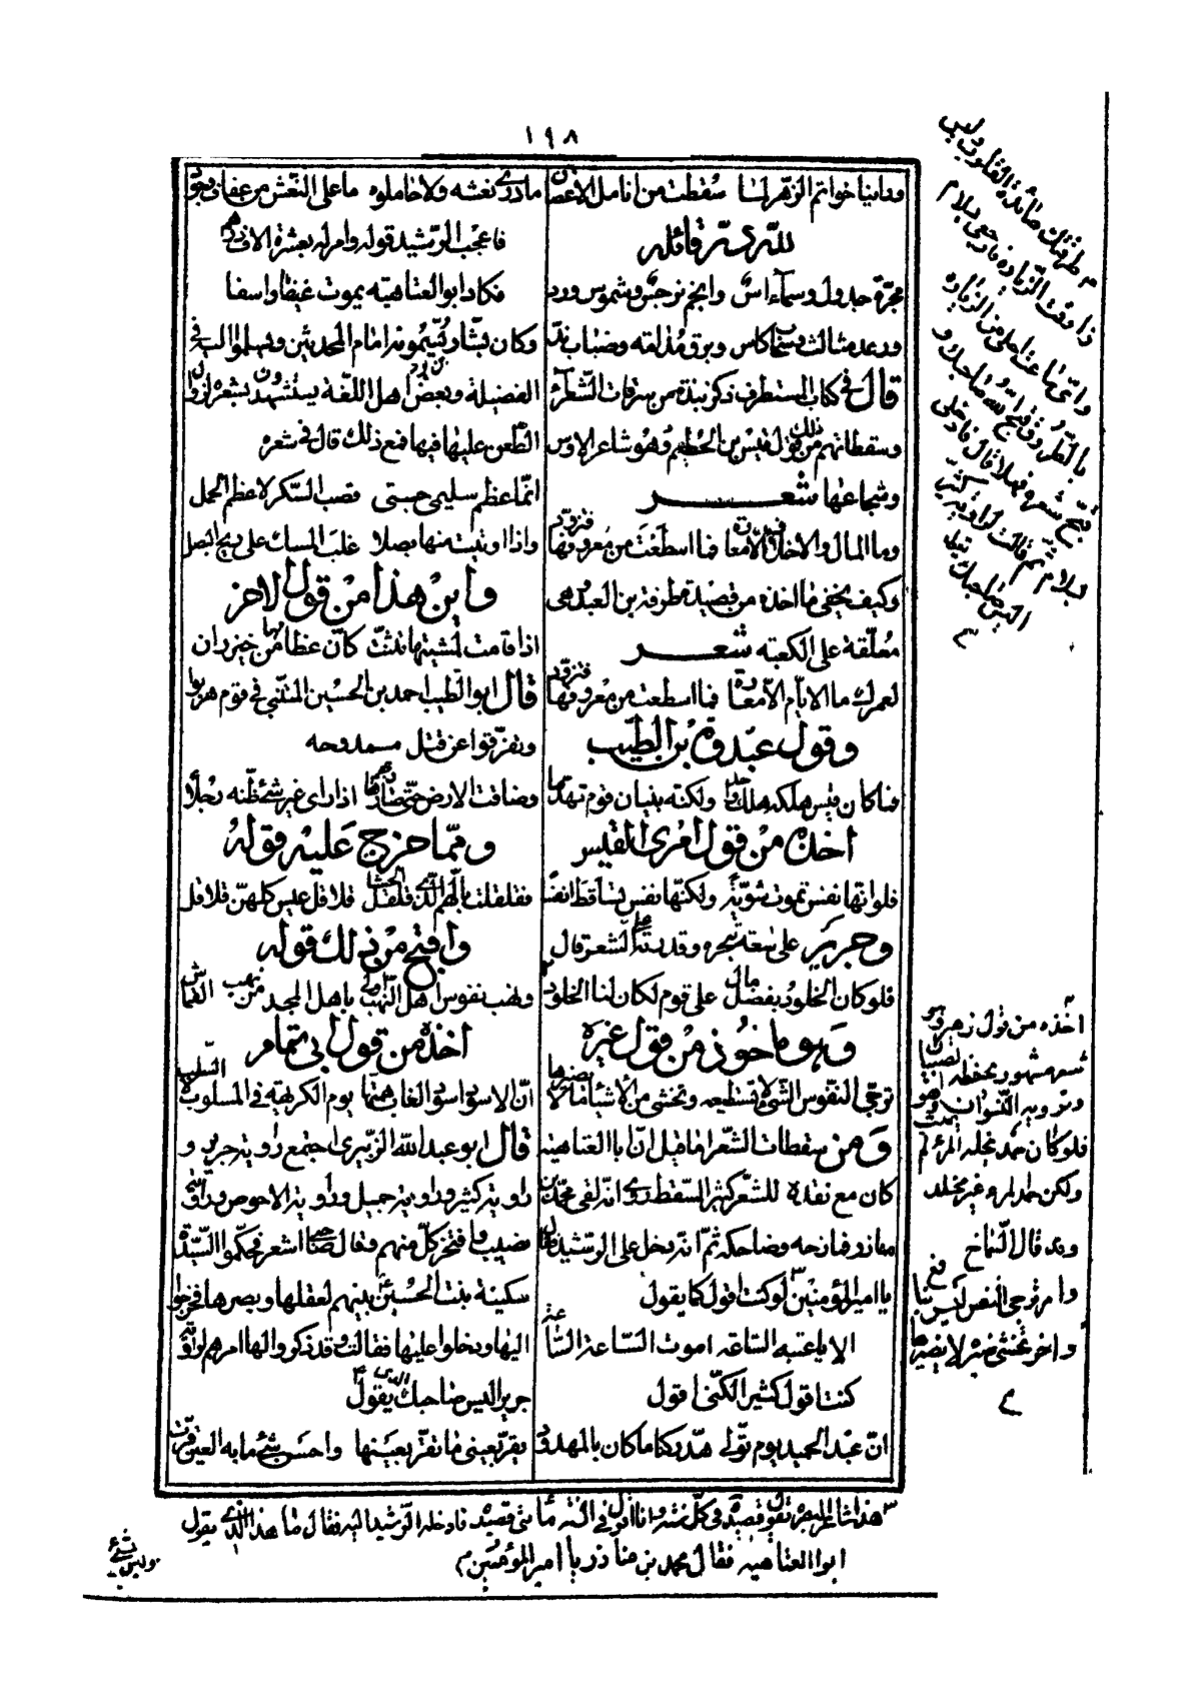 ١٩٨
ودانينا خواتم الزهر لما سقطت من انامل الاغصان
لله در قائله
مجرة جدول وسماء اس وانجم نرجس وشموس ورد
ورعد مثالث وسحاب كاس وبرق مدامة وضباب ند
قال في كتاب المستطرف ذكر نبذة من سرقات الشعراء
وسقطاتهم من ذلك قول قيس بن الخطيم وهو شاعر الاوس
وشجاعها شعر
وما المال والاخلاق الا معارة فما اسطعت من معروفها فتزود
وكيف يخفى ما اخذه من قصيدة طرفة بن العبد وهي
معلقة على الكعبة شعر
لعمرك ما الايام الا معارة فما اسطعت من معروفها فتزود
وقول عبدة بن الطيب
فما كان قيس هلكه هلك واحد ولكنه بنيان قوم تهدما
اخذه من قول امرئ القيس
فلو انها نفس تموت سوية ولكنها نفس تساقط انفسا
وجرير على سعة تبحره وقدرته على الشعر قال
فلو كان الخلود بفضل مال على قوم لكان لنا الخلود
وهو ماخوذ من قول غيره
ترجى النفوس الشئ لا تستطيعه وتخشى من الاشياء ما لا يضيرها
ومن سقطات الشعراء ما قيل ان ابا العتاهية
كان مع تقدمه للشعر كثير السقط روى انه لقى محمد بن
مناذر فمازحه وضاحكه ثم انه دخل على الرشيد فقال
يا امير المؤمنين لو كنت اقول كما يقول
الا يا عتبه الساعه اموت الساعة الساعة
كنت اقول كثيرا لكنى اقول
ان عبد الحميد يوم تولى هد ركنا ما كان بالمهدود
ما درى نعشه ولا حاملوه ما على النعش من عفاف وجود
فاعجب الرشيد قوله وامر له بعشرة الاف درهم
فكاد ابو العتاهية يموت غيظا واسفا
وكان بشار بن برد يسمونه امام المحدثين ويسلموا اليه في
الفضيلة وبعض اهل اللغة يستشهدون بشعره لزوال
الطعن عليها فيها فمع ذلك قال في شعره
انما عظم سليمى حبتى قصب السكر لا عظم الجمل
واذا ادنيت منها بصلا غلب المسك على ريح البصل
واين هذا من قول الاخر
اذا قامت لمشيتها تثنت كان عظامها من خيزران
قال ابو الطيب احمد بن الحسين المتنبي في قوم هربوا
وتفرقوا عن قتل ممدوحه
وضاقت الارض حتى صار هاربهم اذا راى غير شئ ظنه رجلا
ومما خرج عليه قوله
فقلقلت بالهم الذى قلقل الحشا قلاقل عيس كلهن قلاقل
واقبح من ذلك قوله
ونهب نفوس اهل النهب اولى باهل المجد من نهب القماش
اخذه من قول ابي تمام
ان الاسود اسود الغاب همتها يوم الكريهة في المسلوب لا السلب
قال ابو عبد الله الزبيرى اجتمع راوية جرير و
راوية كثير وراوية جميل وراوية الاحوص وراوية
نصيب وافتخر كل منهم وقال صاحبى اشعر فحكموا السيدة
سكينة بنت الحسين بينهم لعقلها وبصرها فخرجوا
اليها ودخلوا عليها فقالت وقد ذكروا لها امرهم لراوية
جرير اليس صاحبك الذى يقول
يقر بعيني ما تقر بعينها واحسن شئ ما به العين قرت
م طرقتك صائدة القلوب وليس
ذا وقت الزيارة فارجعى بسلام
واى ساعة احلى من الزيارة
بالطروق قبح الله صاحبك و
قبح شعره فهلا قال فادخلى
بسلام ثم قالت لراوية كثير
اليس صاحبك يقول
اخذه من قول زهير وهو
شعر مشهور يحفظه الصبيان
وترويه النسوان وهو
فلو كان حمد يخلد المرء لم يمت
ولكن حمد المرء غير مخلد
وقد قال الشماخ
وامر ترجى النفس ليس بنافع
واخر تخشى ضيره لا يضيرها
هذا شاعر المهر تقول قصيدة في كل سنة وانا اقول في السنة مائتي قصيدة فادخله الرشيد اليه فقال ما هذا الذى يقول
ابو العتاهية فقال محمد بن مناذر يا امير المؤمنين م
وليس شئ